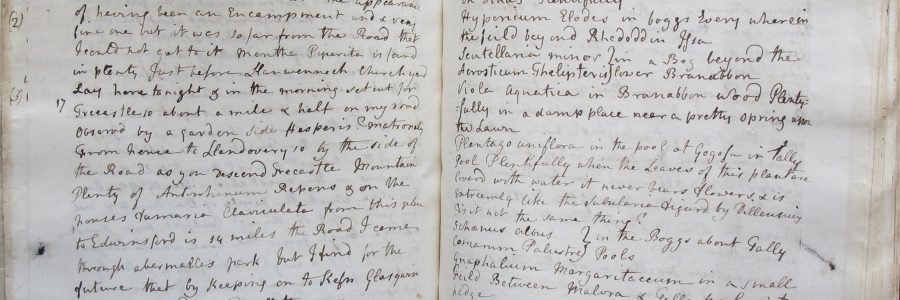 the appearance
(2) of having been an Encampment and a very
fine one but it was so far from the Road that
I could not get to it mentha Piperita is found
in plenty Just before Llanwennoch Church yard
(3) Lay here tonight & in the morning set out for
17 Trecastle 10 about a mile & half on my road
Observd by a garden side Hesperis? matronalis
From hence to Llandovery 10 by the side of
the Road as you descend Trecastle Mountain
Plenty of Antirrhinum Repens & on the
houses Fumaria Claviculata from this place
to Edwinsford is 14 miles the Road I came
through abermarles park but I find for the
future that by Keeping on to
Plentifully
Hypericum Elodes in boggs Every wherein
the feild beyond Rhedoddin Issa
Scutellaria minor } in a Bog beyond the
Acrosticum Thelipteris } lower Branabbon
Viola Aquatica in Branabbon wood Plenty-
-fully in a damp place near a pretty spring upon
the Lawn
Plantago uniflora in the pool at Gogofa in Tally
Pool Plentifully when the Leaves of this plant are
Coverd with water it never bears flowers & is
extremely like the Subularia figurd by Dillenius
Is it not the same thing?
Schœnus albus } in the Boggs about Tally
Comarum Palustre } Pools
Gnaphalium Margaretaceum in a small
feild Between Malora &
hedge